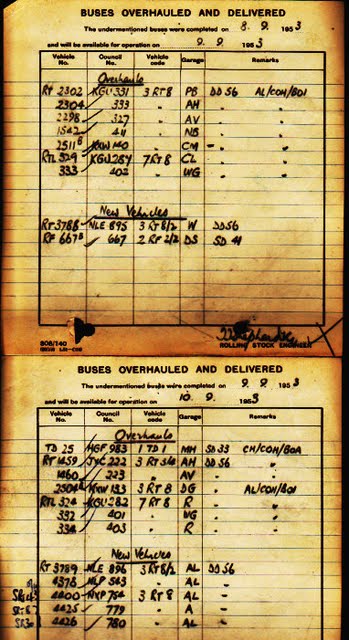 BUSES OVERHAULED AND DELIVERED
The undermentioned buses were completed on 8. 9. 1953
and will be available for operation on 9. 9 1953
Vehicle No. Council No. Vehicle code Garage Remarks
Overhauls
RT 2302 KGU 331 3 RT 8 PB DD 56 AL/COH/BOI
2304 333 " AH " "
2298 327 " AV " "
1542 411 " NB " "
2511 KXW 140 " CM " "
RTL 329 KGU 284 7 RT 8 CL " "
333 402 " WG " "
New Vehicles
RT 3788 NLE 895 3 RT 8/2 W DD56
RF 667 667 2 RF 2/2 DS SD 41
ROLLING STOCK ENGINEER
BUSES OVERHAULED AND DELIVERED
The undermentioned buses were completed on 9. 9. 1953
and will be available for operation on 10. 9. 1953
Vehicle No. Council No. Vehicle code Garage Remarks
Overhauls
TD 25 HGF 983 1 TD 1 MH SD 33 CH/COH/BOA
RT 1459 JXC 222 3 RT 3/4 AH DD 56 "
1460 223 " AV " "
2504 KXW 133 3 RT 8 DG " AL/COH/BOI
RTL 324 KGU 282 7 RT 8 R " "
332 401 " WG " "
334 403 " R " "
New Vehicles
RT 3789 NLE 896 3 RT 8/2 AL DD 56
4378 NLP 543 " AL "
4400 NXP 754 3 RT 8 AL "
4425 779 " A "
4426 780 " AL "